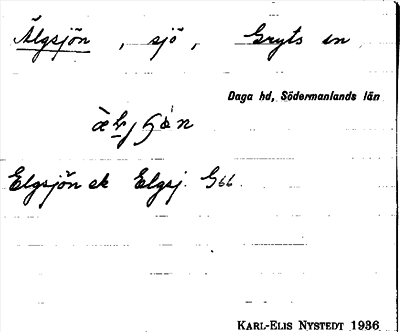 Älgsjön, sjö, Gryts sn
Daga hd, Södermanlands län
Elgsjön ek Elgsj. G66.
KARL-ELIS NYSTEDT 1936